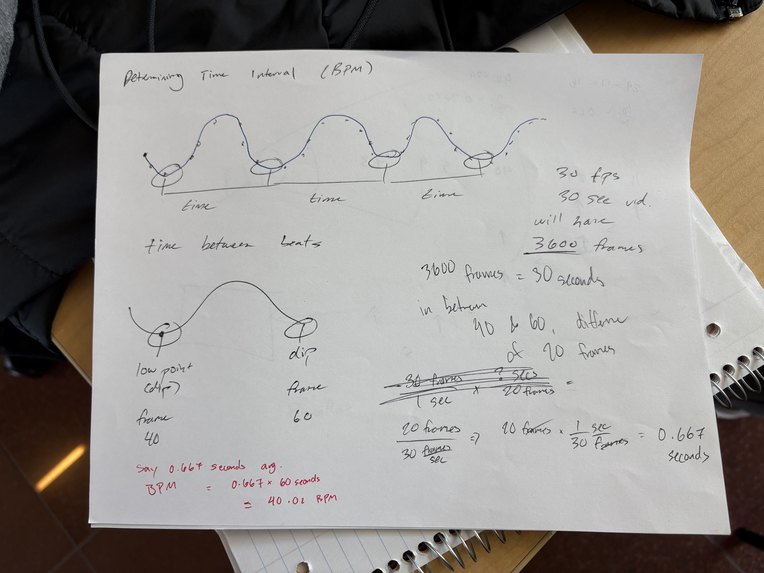 Determining Time Interval (BPM)
time time time
30 fps
30 sec vid.
will have
3600 frames
time between beats
3600 frames = 30 seconds
in between
40 & 60, difference
of 20 frames
low point
(dip)
frame
40
dip
frame
60
30 frames / 1 sec × ? secs / 20 frames =
20 frames / 30 frames/sec => 20 frames × 1/30 sec/frames = 0.667
seconds
Say 0.667 seconds avg.
BPM = 0.667 × 60 seconds
= 40.02 BPM